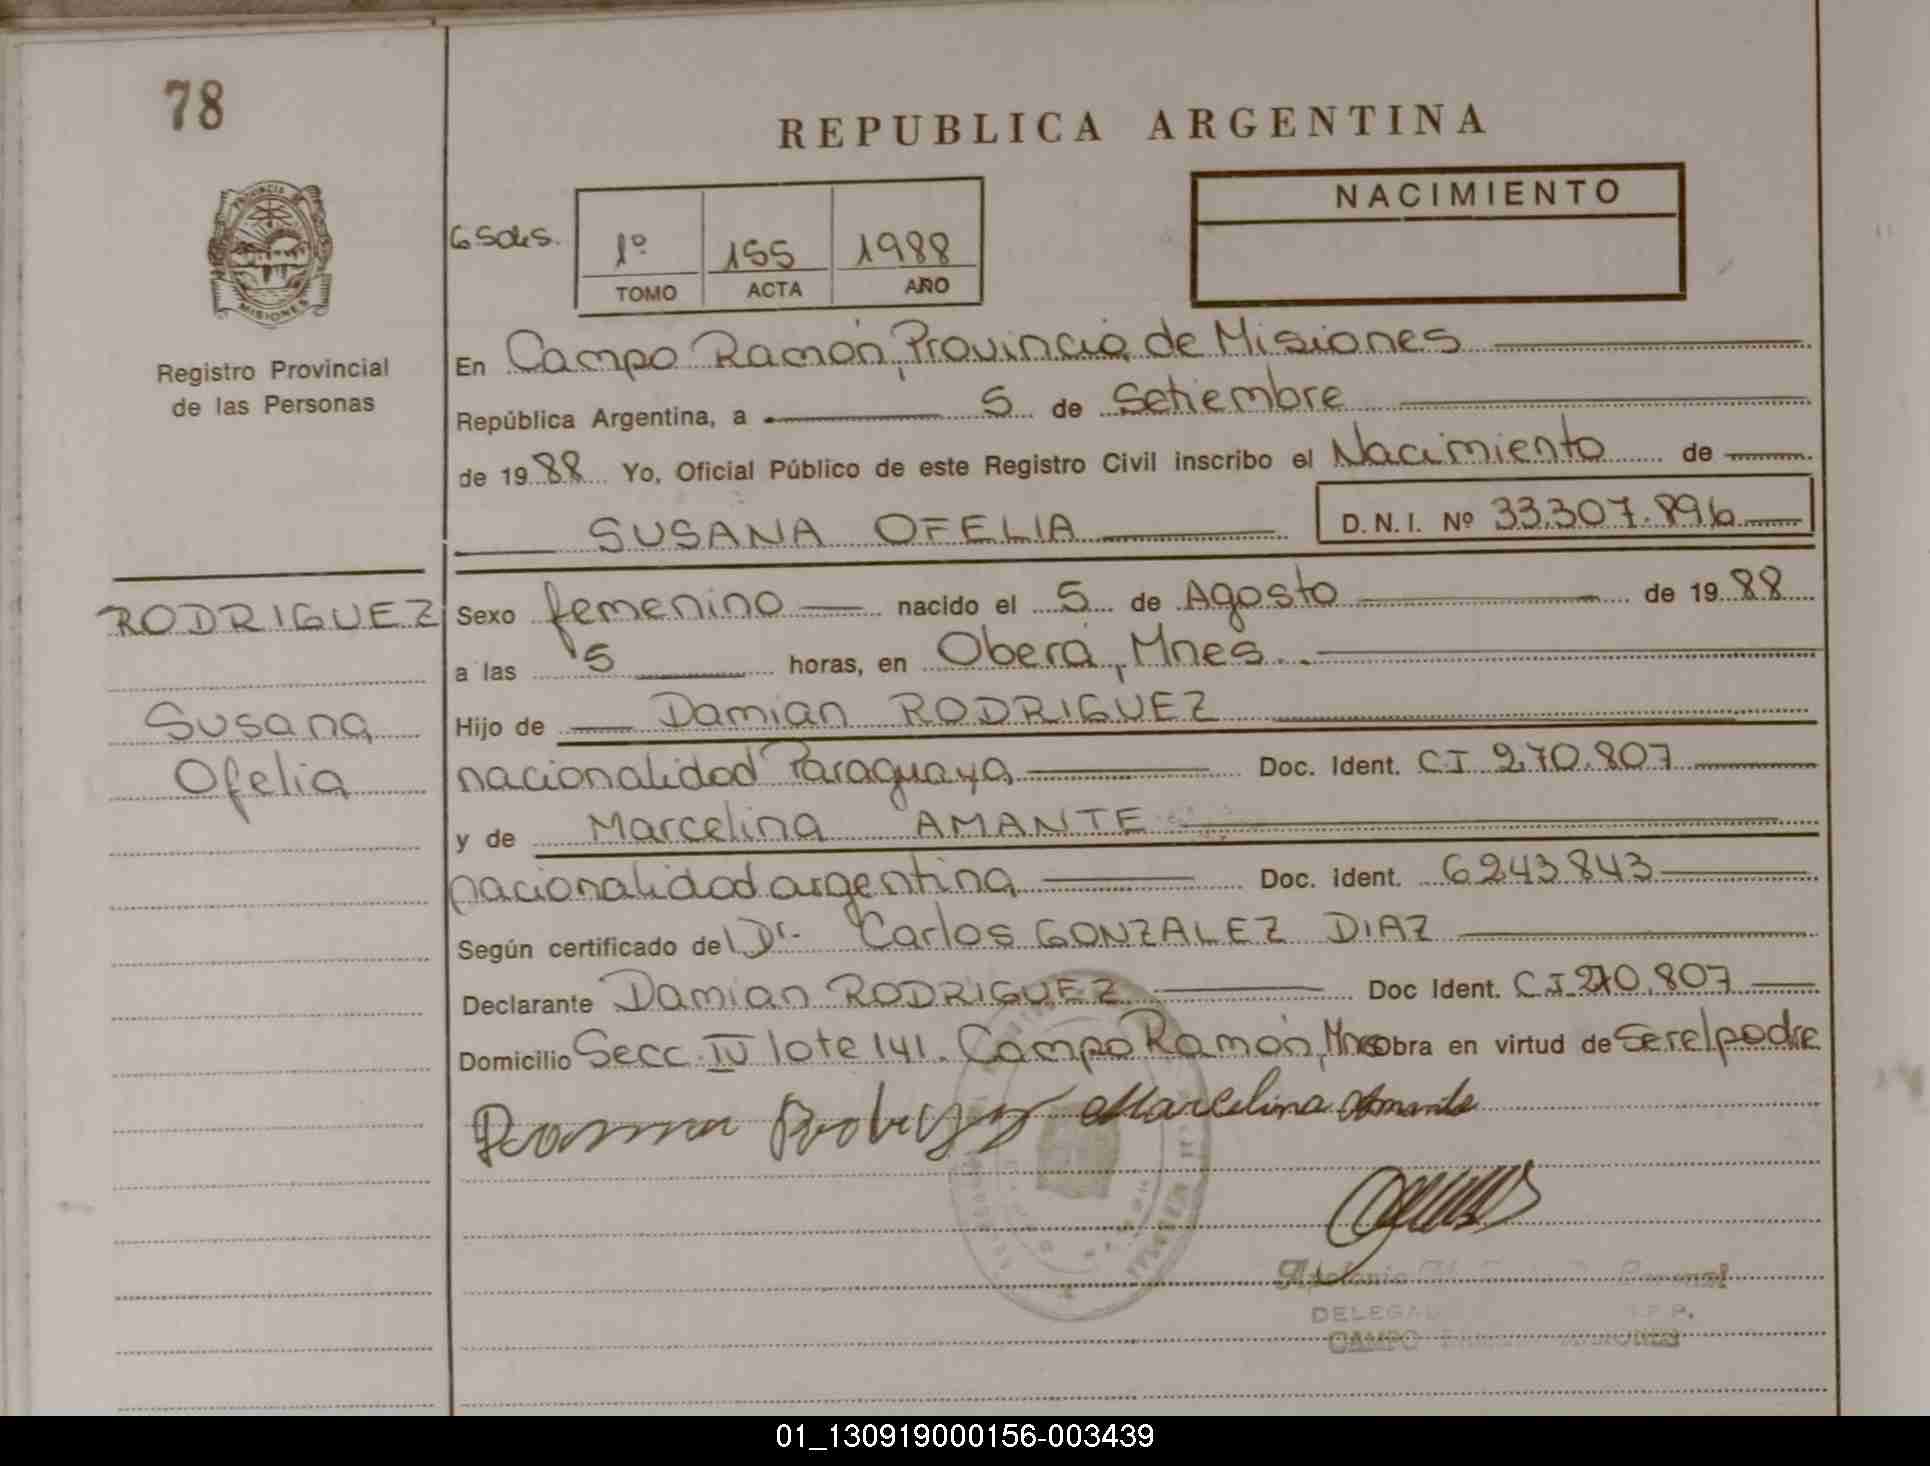 78
REPUBLICA ARGENTINA
NACIMIENTO
1º 155 1988
TOMO ACTA AÑO
PROVINCIA DE
MISIONES
Registro Provincial
de las Personas
En Campo Ramón, Provincia de Misiones
República Argentina, a 5 de Setiembre
de 1988 Yo, Oficial Público de este Registro Civil inscribo el Nacimiento de
SUSANA OFELIA D.N.I. Nº 33.307.896
RODRIGUEZ
Susana
Ofelia
Sexo femenino nacido el 5 de Agosto de 1988
a las 5 horas, en Oberá, Mnes.
Hijo de Damian RODRIGUEZ
nacionalidad Paraguaya Doc. Ident. CI 270.807
y de Marcelina AMANTE
nacionalidad argentina Doc. Ident. 6243843
Según certificado del Dr. Carlos GONZALEZ DIAZ
Declarante Damian RODRIGUEZ Doc Ident. C.I. 270.807
Domicilio Secc. IV lote 141. Campo Ramón, Mnes obra en virtud de ser el padre
Marcelina Amante
DELEGAD
CAMPO MISIONES
01_130919000156-003439